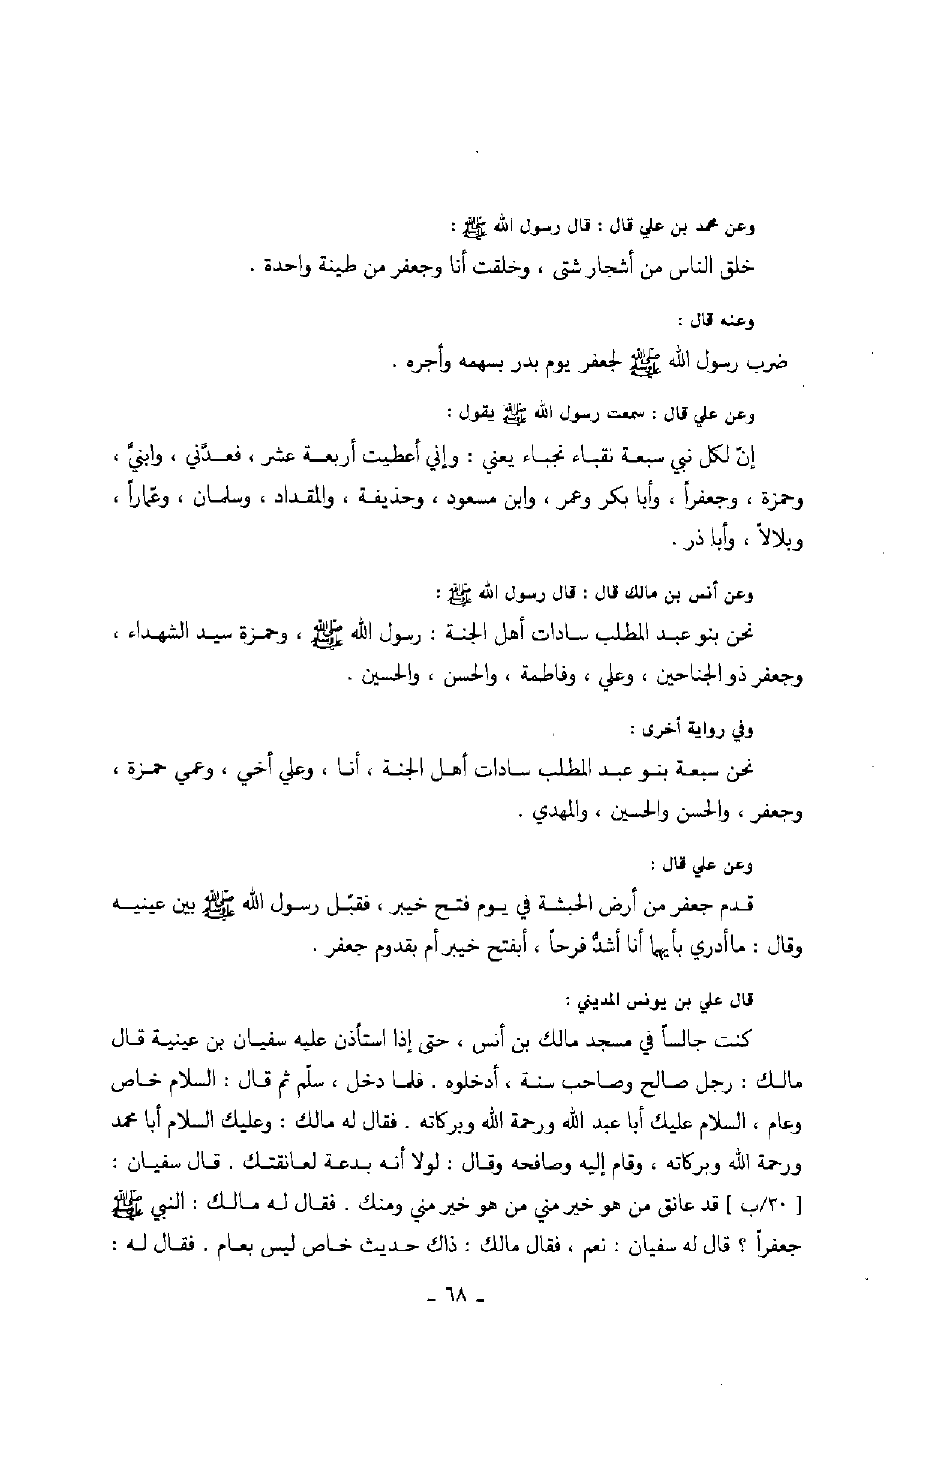 وعن محمد بن علي قال : قال رسول الله ﷺ :
خلق الناس من أشجار شتى ، وخلقت أنا وجعفر من طينة واحدة .
وعنه قال :
ضرب رسول الله ﷺ لجعفر يوم بدر بسهمه وأجره .
وعن علي قال : سمعت رسول الله ﷺ يقول :
إنّ لكل نبي سبعة نقباء نجباء يعني : وإني أعطيت أربعة عشر ، فعدّني ، وابنيَّ ،
وحمزة ، وجعفراً ، وأبا بكر وعمر ، وابن مسعود ، وحذيفة ، والمقداد ، وسلمان ، وعمّاراً ،
وبلالاً ، وأبا ذر .
وعن أنس بن مالك قال : قال رسول الله ﷺ :
نحن بنو عبد المطلب سادات أهل الجنة : رسول الله ﷺ ، وحمزة سيد الشهداء ،
وجعفر ذو الجناحين ، وعلي ، وفاطمة ، والحسن ، والحسين .
وفي رواية أخرى :
نحن سبعة بنو عبد المطلب سادات أهل الجنة ، أنا ، وعلي أخي ، وعمي حمزة ،
وجعفر ، والحسن والحسين ، والمهدي .
وعن علي قال :
قدم جعفر من أرض الحبشة في يوم فتح خيبر ، فقبّل رسول الله ﷺ بين عينيه
وقال : ماأدري بأيهما أنا أشدُّ فرحاً ، أبفتح خيبر أم بقدوم جعفر .
قال علي بن يونس المديني :
كنت جالساً في مسجد مالك بن أنس ، حتى إذا استأذن عليه سفيان بن عيينة قال
مالك : رجل صالح وصاحب سنة ، أدخلوه . فلما دخل ، سلّم ثم قال : السلام خاص
وعام ، السلام عليك أبا عبد الله ورحمة الله وبركاته . فقال له مالك : وعليك السلام أبا محمد
ورحمة الله وبركاته ، وقام إليه وصافحه وقال : لولا أنه بدعة لعانقتك . قال سفيان :
[ ٣٠/ب ] قد عانق من هو خير مني من هو خير مني ومنك . فقال له مالك : النبي ﷺ
جعفراً ؟ قال له سفيان : نعم ، فقال مالك : ذاك حديث خاص ليس بعام . فقال له :
ـ ٦٨ ـ